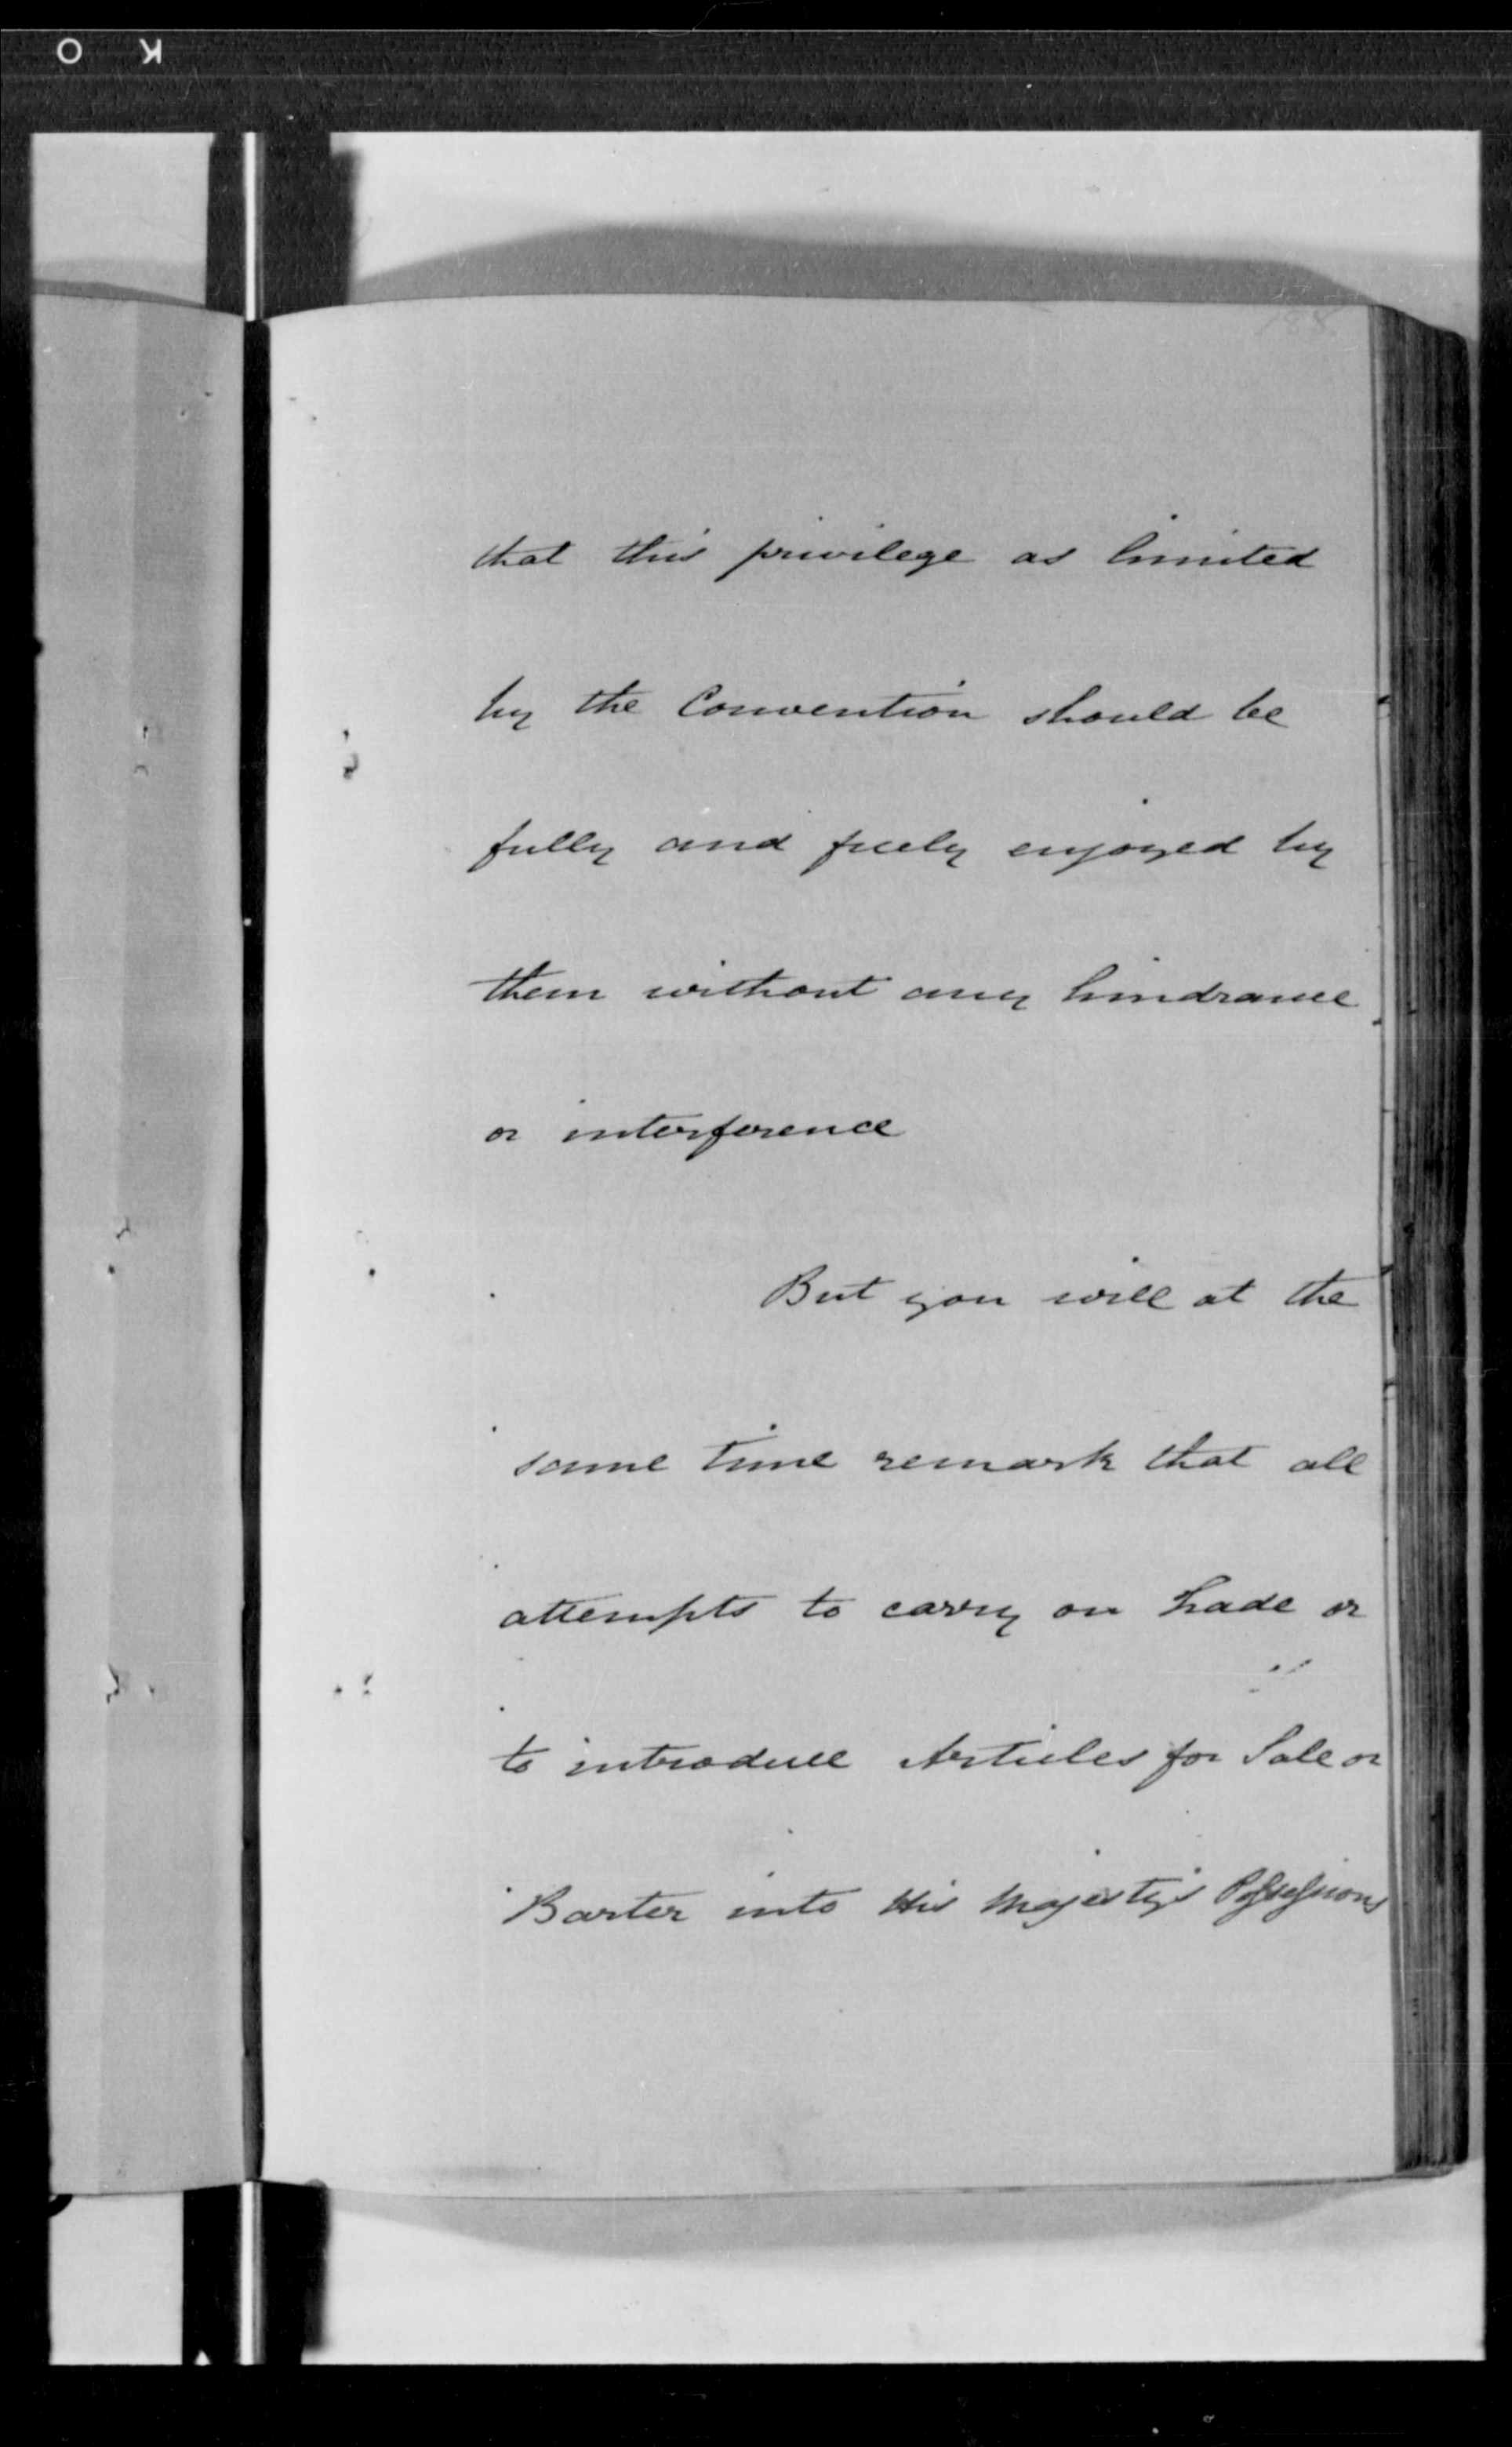 O K
188
that this privilege as limited
by the Convention should be
fully and freely enjoyed by
them without any hindrance
or interference
But you will at the
same time remark that all
attempts to carry on trade or
to introduce Articles for Sale or
Barter into His Majesty's Possessions